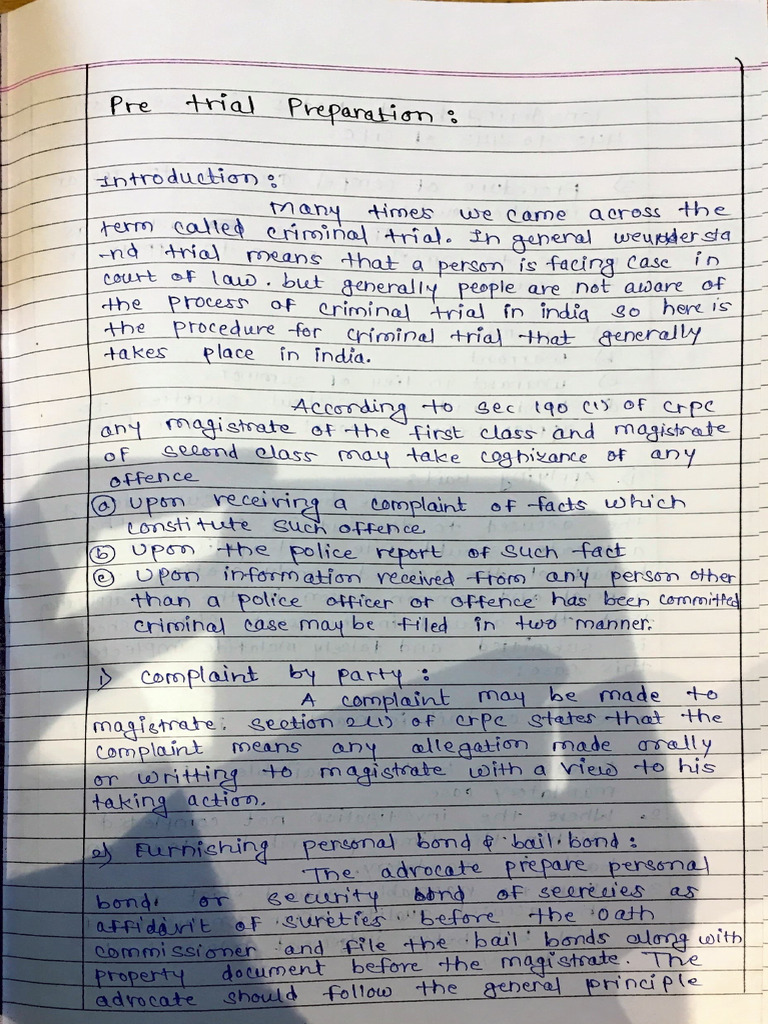 Pre trial Preparation :
Introduction :
Many times we came across the
term called criminal trial. In general weundersta
-nd trial means that a person is facing case in
court of law. but generally people are not aware of
the process of criminal trial in india so here is
the procedure for criminal trial that generally
takes place in india.
According to sec 190 (1) of crpc
any magistrate of the first class and magistrate
of second class may take cognizance of any
offence
(a) upon receiving a complaint of facts which
constitute such offence
(b) upon the police report of such fact
(c) upon information received from any person other
than a police officer or offence has been committed
criminal case may be filed in two manner.
1) complaint by party :
A complaint may be made to
magistrate. section 2(1) of crpc states that the
complaint means any allegation made orally
or writting to magistrate with a view to his
taking action.
2) Furnishing personal bond & bail bond :
The advocate prepare personal
bond or security bond of secrecies as
affidavit of sureties before the oath
commissioner and file the bail bonds along with
property document before the magistrate. The
advocate should follow the general principle